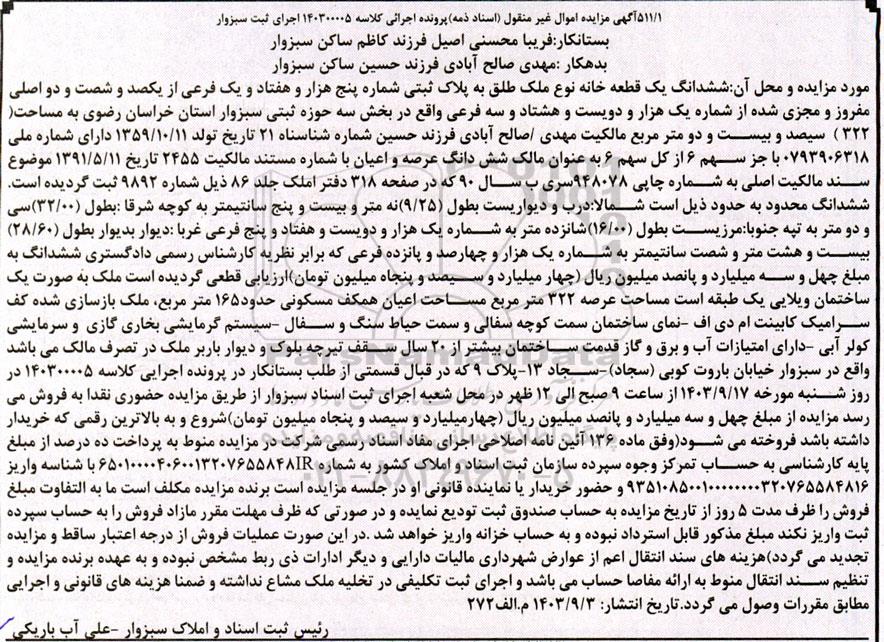 ۵۱۱/۱آگهی مزایده اموال غیر منقول (اسناد ذمه)پرونده اجرائی کلاسه ۱۴۰۳۰۰۰۵ اجرای ثبت سبزوار
بستانکار:فریبا محسنی اصیل فرزند کاظم ساکن سبزوار
بدهکار :مهدی صالح آبادی فرزند حسین ساکن سبزوار
مورد مزایده و محل آن:ششدانگ یک قطعه خانه نوع ملک طلق به پلاک ثبتی شماره پنج هزار و هفتاد و یک فرعی از یکصد و شصت و دو اصلی
مفروز و مجزی شده از شماره یک هزار و دویست و هشتاد و سه فرعی واقع در بخش سه حوزه ثبتی سبزوار استان خراسان رضوی به مساحت(
۳۲۲ ) سیصد و بیست و دو متر مربع مالکیت مهدی /صالح آبادی فرزند حسین شماره شناسناه ۲۱ تاریخ تولد ۱۳۵۹/۱۰/۱۱ دارای شماره ملی
۰۷۹۳۹۰۶۳۱۸ با جز سهم ۶ از کل سهم ۶ به عنوان مالک شش دانگ عرصه و اعیان با شماره مستند مالکیت ۲۴۵۵ تاریخ ۱۳۹۱/۵/۱۱ موضوع
سند مالکیت اصلی به شماره چاپی ۹۴۸۰۷۸سری پ سال ۹۰ که در صفحه ۳۱۸ دفتر املک جلد ۸۶ ذیل شماره ۹۸۹۲ ثبت گردیده است.
ششدانگ محدود به حدود ذیل است شمالا:درب و دیواریست بطول (۹/۲۵)نه متر و بیست و پنج سانتیمتر به کوچه شرقا :بطول (۳۲/۰۰)سی
و دو متر به تپه جنوبا:مرزیست بطول (۱۶/۰۰)شانزده متر به شماره یک هزار و دویست و هفتاد و پنج فرعی غربا :دیوار بدیوار بطول (۲۸/۶۰)
بیست و هشت متر و شصت سانتیمتر به شماره یک هزار و چهارصد و پانزده فرعی که برابر نظریه کارشناس رسمی دادگستری ششدانگ به
مبلغ چهل و سه میلیارد و پانصد میلیون ریال (چهار میلیارد و سیصد و پنجاه میلیون تومان)ارزیابی قطعی گردیده است ملک به صورت یک
ساختمان ویلایی یک طبقه است مساحت عرصه ۳۲۲ متر مربع مساحت اعیان همکف مسکونی حدود۱۶۵ متر مربع، ملک بازسازی شده کف
سرامیک کابینت ام دی اف -نمای ساختمان سمت کوچه سفالی و سمت حیاط سنگ و سفال -سیستم گرمایشی بخاری گازی و سرمایشی
کولر آبی -دارای امتیازات آب و برق و گاز قدمت ساختمان بیشتر از ۲۰ سال سقف تیرچه بلوک و دیوار باربر ملک در تصرف مالک می باشد
واقع در سبزوار خیابان باروت کوبی (سجاد)-سجاد ۱۳-پلاک ۹ که در قبال قسمتی از طلب بستانکار در پرونده اجرایی کلاسه ۱۴۰۳۰۰۰۵ در
روز شنبه مورخه ۱۴۰۳/۹/۱۷ از ساعت ۹ صبح الی ۱۲ ظهر در محل شعبه اجرای ثبت اسناد سبزوار از طریق مزایده حضوری نقدا به فروش می
رسد مزایده از مبلغ چهل و سه میلیارد و پانصد میلیون ریال (چهارمیلیارد و سیصد و پنجاه میلیون تومان)شروع و به بالاترین رقمی که خریدار
داشته باشد فروخته می شود(وفق ماده ۱۳۶ آئین نامه اصلاحی اجرای مفاد اسناد رسمی شرکت در مزایده منوط به پرداخت ده درصد از مبلغ
پایه کارشناسی به حساب تمرکز وجوه سپرده سازمان ثبت اسناد و املاک کشور به شماره ۶۵۰۱۰۰۰۰۴۰۶۰۰۱۳۲۰۷۶۵۵۸۴۸IR با شناسه واریز
۹۳۵۱۰۸۵۰۰۱۰۰۰۰۰۰۰۰۳۲۰۷۶۵۵۸۴۸۱۶ و حضور خریدار یا نماینده قانونی او در جلسه مزایده است برنده مزایده مکلف است ما به التفاوت مبلغ
فروش را ظرف مدت ۵ روز از تاریخ مزایده به حساب صندوق ثبت تودیع نماید و در صورتی که ظرف مهلت مقرر مازاد فروش را به حساب سپرده
ثبت واریز نکند مبلغ مذکور قابل استرداد نبوده و به حساب خزانه واریز خواهد شد .در این صورت عملیات فروش از درجه اعتبار ساقط و مزایده
تجدید می گردد)هزینه های سند انتقال اعم از عوارض شهرداری مالیات دارایی و دیگر ادارات ذی ربط مشخص نبوده و به عهده برنده مزایده و
تنظیم سند انتقال منوط به ارائه مفاصا حساب می باشد و اجرای ثبت تکلیفی در تخلیه ملک مشاع نداشته و ضمنا هزینه های قانونی و اجرایی
مطابق مقررات وصول می گردد.تاریخ انتشار: ۱۴۰۳/۹/۳ م.الف۲۷۲
رئیس ثبت اسناد و املاک سبزوار -علی آب باریکی